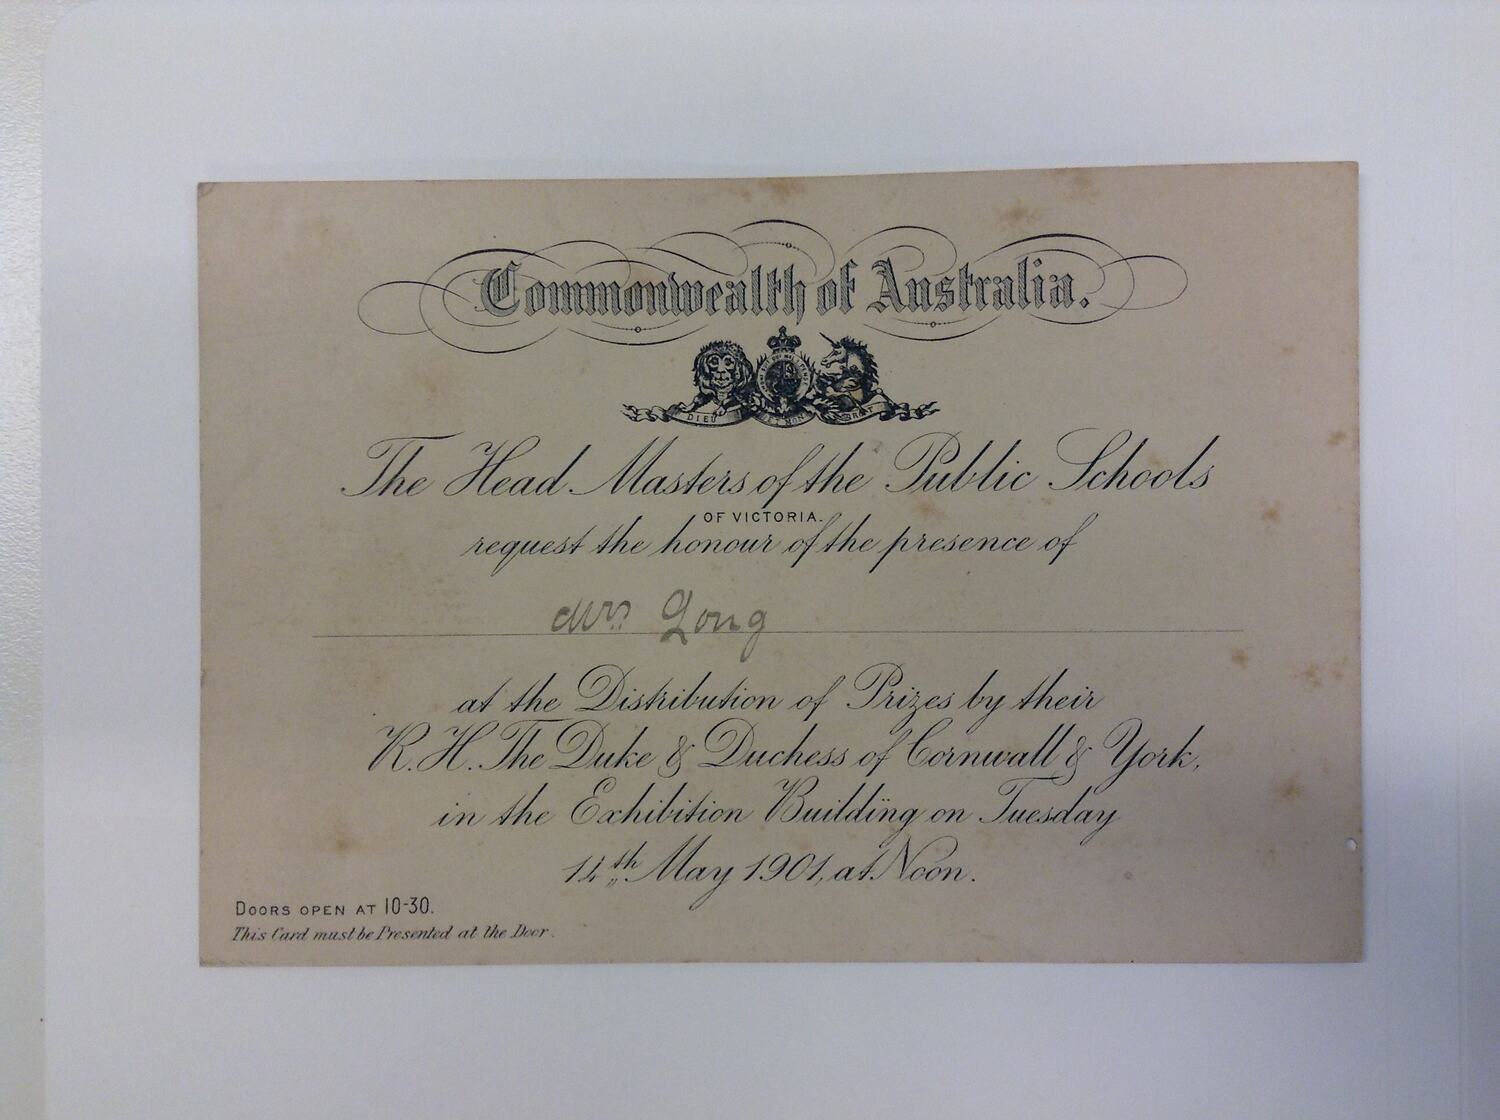 Commonwealth of Australia.
DIEU ET MON DROIT
The Head Masters of the Public Schools
OF VICTORIA.
request the honour of the presence of
Mrs
at the Distribution of Prizes by their
R. H. The Duke & Duchess of Cornwall & York,
in the Exhibition Building on Tuesday
14th May 1901, at Noon.
DOORS OPEN AT 10-30.
This Card must be Presented at the Door.